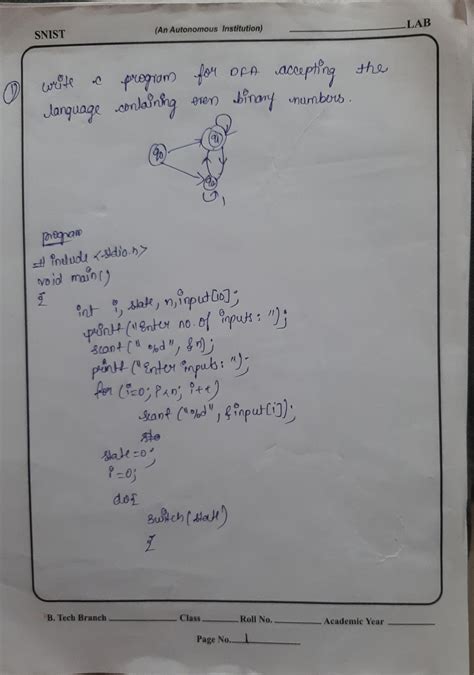 SNIST
(An Autonomous Institution)
LAB
1) write c program for DFA accepting the
language containing even binary numbers.
q0
q1
q2
1
program
#include <stdio.h>
void main()
{
int i, state, n, input[10];
printf("Enter no. of inputs: ");
scanf("%d", &n);
printf("Enter inputs: ");
for (i=0; i<n; i++)
scanf("%d", &input[i]);
state=0;
i=0;
do{
switch(state)
{
B. Tech Branch
Class
Roll No.
Academic Year
Page No. 1